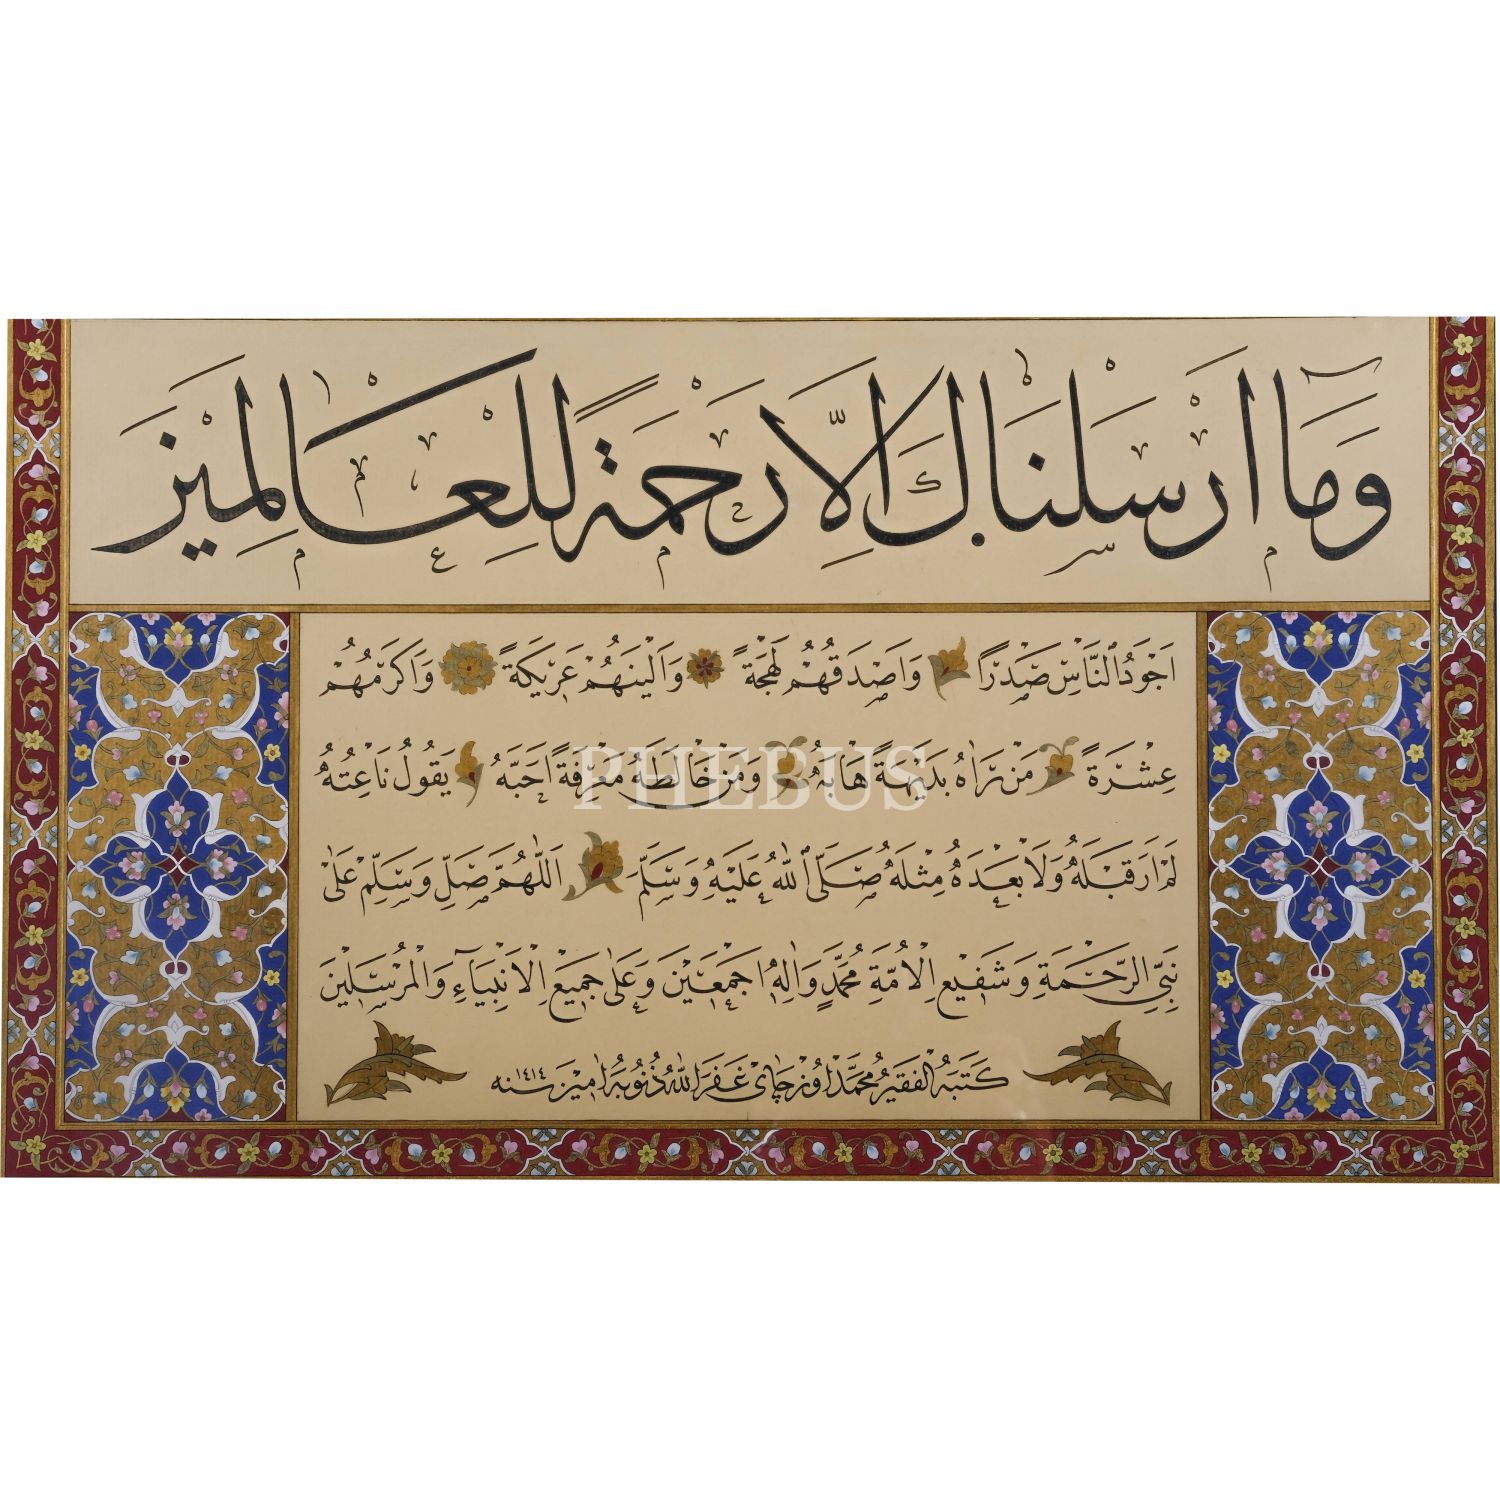 وَمَٓا اَرْسَلْنَاكَ اِلَّا رَحْمَةً لِلْعَالَمِينَ
اَجْوَدُ النَّاسِ صَدْرًا وَاَصْدَقُهُمْ لَهْجَةً وَاَلْيَنُهُمْ عَرِيكَةً وَاَكْرَمُهُمْ
عِشْرَةً مَنْ رَاٰهُ بَدِيهَةً هَابَهُ وَمَنْ خَالَطَهُ مَعْرِفَةً اَحَبَّهُ يَقُولُ نَاعِتُهُ
لَمْ اَرَ قَبْلَهُ وَلَا بَعْدَهُ مِثْلَهُ صَلَّى اللّٰهُ عَلَيْهِ وَسَلَّمَ اَللّٰهُمَّ صَلِّ وَسَلِّمْ عَلٰى
نَبِيِّ الرَّحْمَةِ وَشَفِيعِ الْاُمَّةِ مُحَمَّدٍ وَاٰلِهِ اَجْمَعِينَ وَعَلٰى جَمِيعِ الْاَنْبِيَٓاءِ وَالْمُرْسَلِينَ
كَتَبَهُ الْفَقِيرُ مُحَمَّدْ اوزچاى غَفَرَ اللّٰهُ ذُنُوبَهُ اٰمِينَ سنه ١٤١٤
PHEBUS